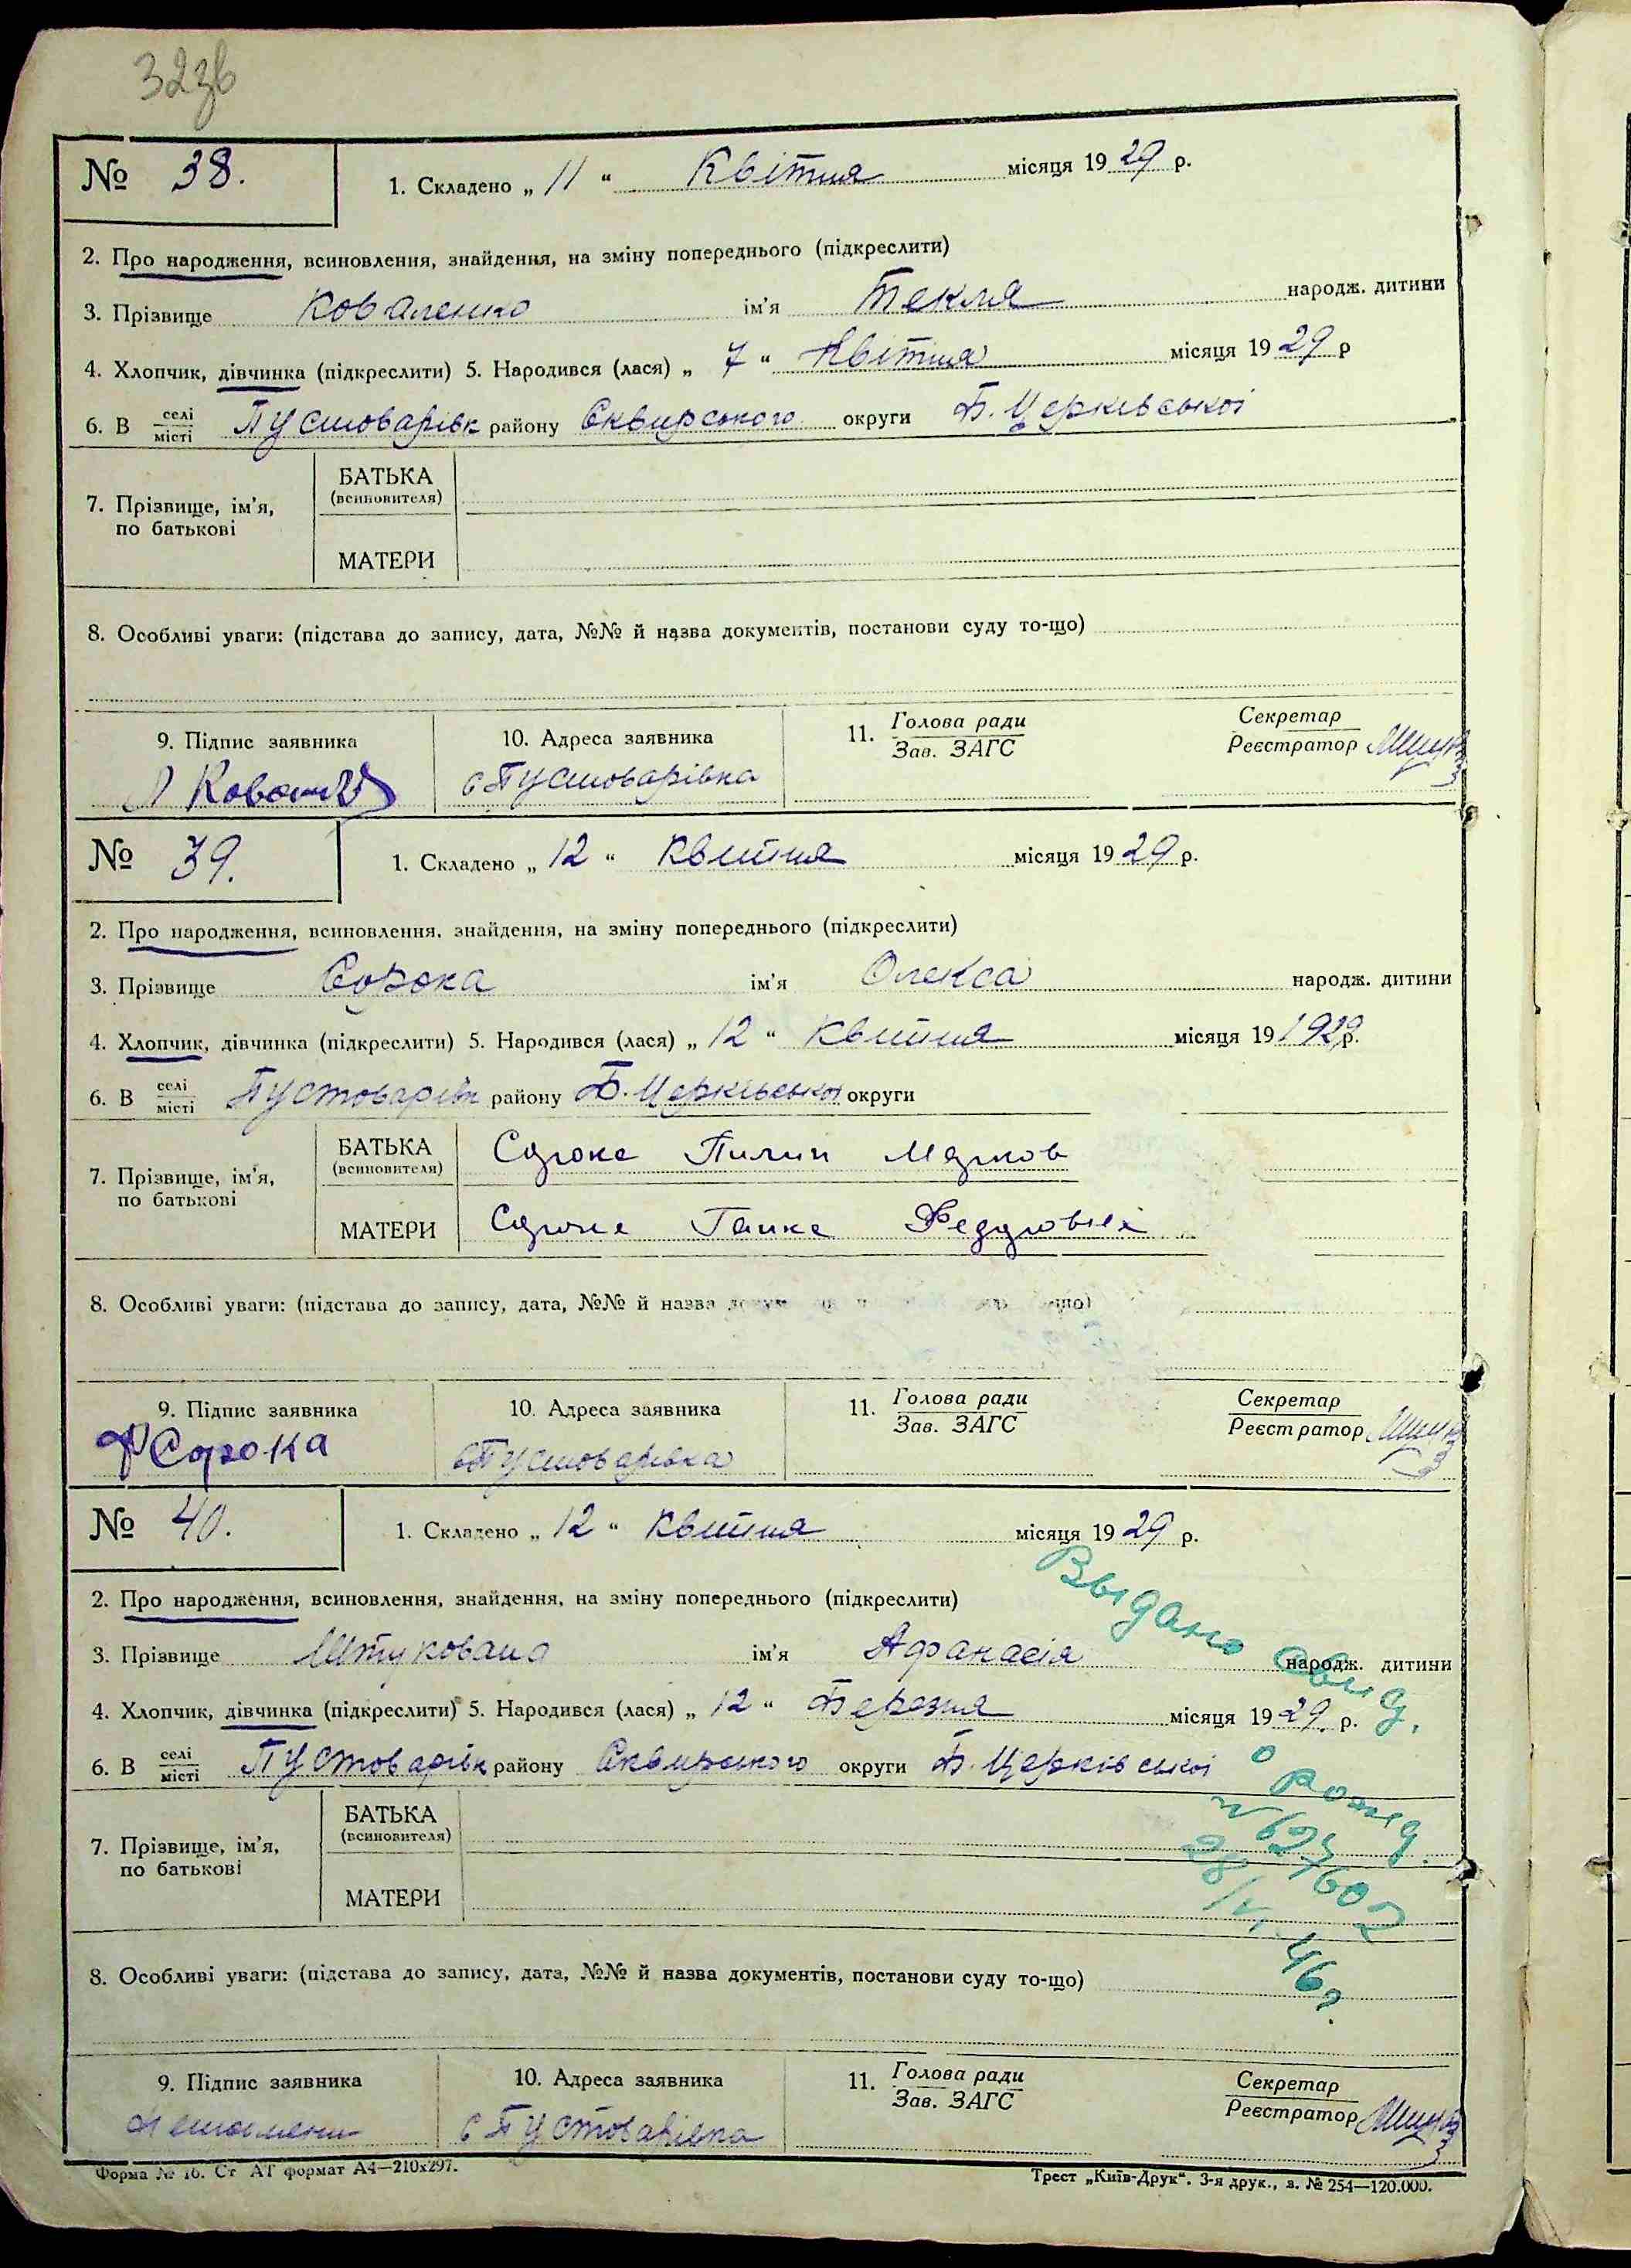 32зв
№ 38.
1. Складено „ 11 “ Квітня місяця 19 29 р.
2. Про народження, всиновлення, знайдення, на зміну попереднього (підкреслити)
3. Прізвище Коваленко ім'я Текля народж. дитини
4. Хлопчик, дівчинка (підкреслити) 5. Народився (лася) „ 7 “ Квітня місяця 19 29 р
6. В селі місті Пустоварівк району Сквирського округи Б. Церківської
7. Прізвище, ім'я, по батькові
БАТЬКА (всиновителя)
МАТЕРИ
8. Особливі уваги: (підстава до запису, дата, №№ й назва документів, постанови суду то-що)
9. Підпис заявника
10. Адреса заявника
11. Голова ради Зав. ЗАГС
Секретар Реєстратор
с Пустоварівка
№ 39.
1. Складено „ 12 “ Квітня місяця 19 29 р.
2. Про народження, всиновлення, знайдення, на зміну попереднього (підкреслити)
3. Прізвище Сорока ім'я Олекса народж. дитини
4. Хлопчик, дівчинка (підкреслити) 5. Народився (лася) „ 12 “ Квітня місяця 19 1929 р.
6. В селі місті Пустоварівк району Б. Церківської округи
7. Прізвище, ім'я, по батькові
БАТЬКА (всиновителя) Сорока Пилип Марков
МАТЕРИ Сорока Ганка Федоровна
8. Особливі уваги: (підстава до запису, дата, №№ й назва
9. Підпис заявника
10. Адреса заявника
11. Голова ради Зав. ЗАГС
Секретар Реєстратор
Ф Сорока
с Пустоварівка
№ 40.
1. Складено „ 12 “ Квітня місяця 19 29 р.
2. Про народження, всиновлення, знайдення, на зміну попереднього (підкреслити)
3. Прізвище Штукована ім'я Афанасія народж. дитини
4. Хлопчик, дівчинка (підкреслити) 5. Народився (лася) „ 12 “ Березня місяця 19 29. р.
6. В селі місті Пустоварівк району Сквирського округи Б. Церківської
Выдано свид.
о рожд.
№ 627602
28/VI 46г.
7. Прізвище, ім'я, по батькові
БАТЬКА (всиновителя)
МАТЕРИ
8. Особливі уваги: (підстава до запису, дата, №№ й назва документів, постанови суду то-що)
9. Підпис заявника
10. Адреса заявника
11. Голова ради Зав. ЗАГС
Секретар Реєстратор
с Пустоварівка
Форма № 16. Ст АТ формат А4—210х297.
Трест „Київ-Друк“. 3-я друк., з. № 254—120.000.